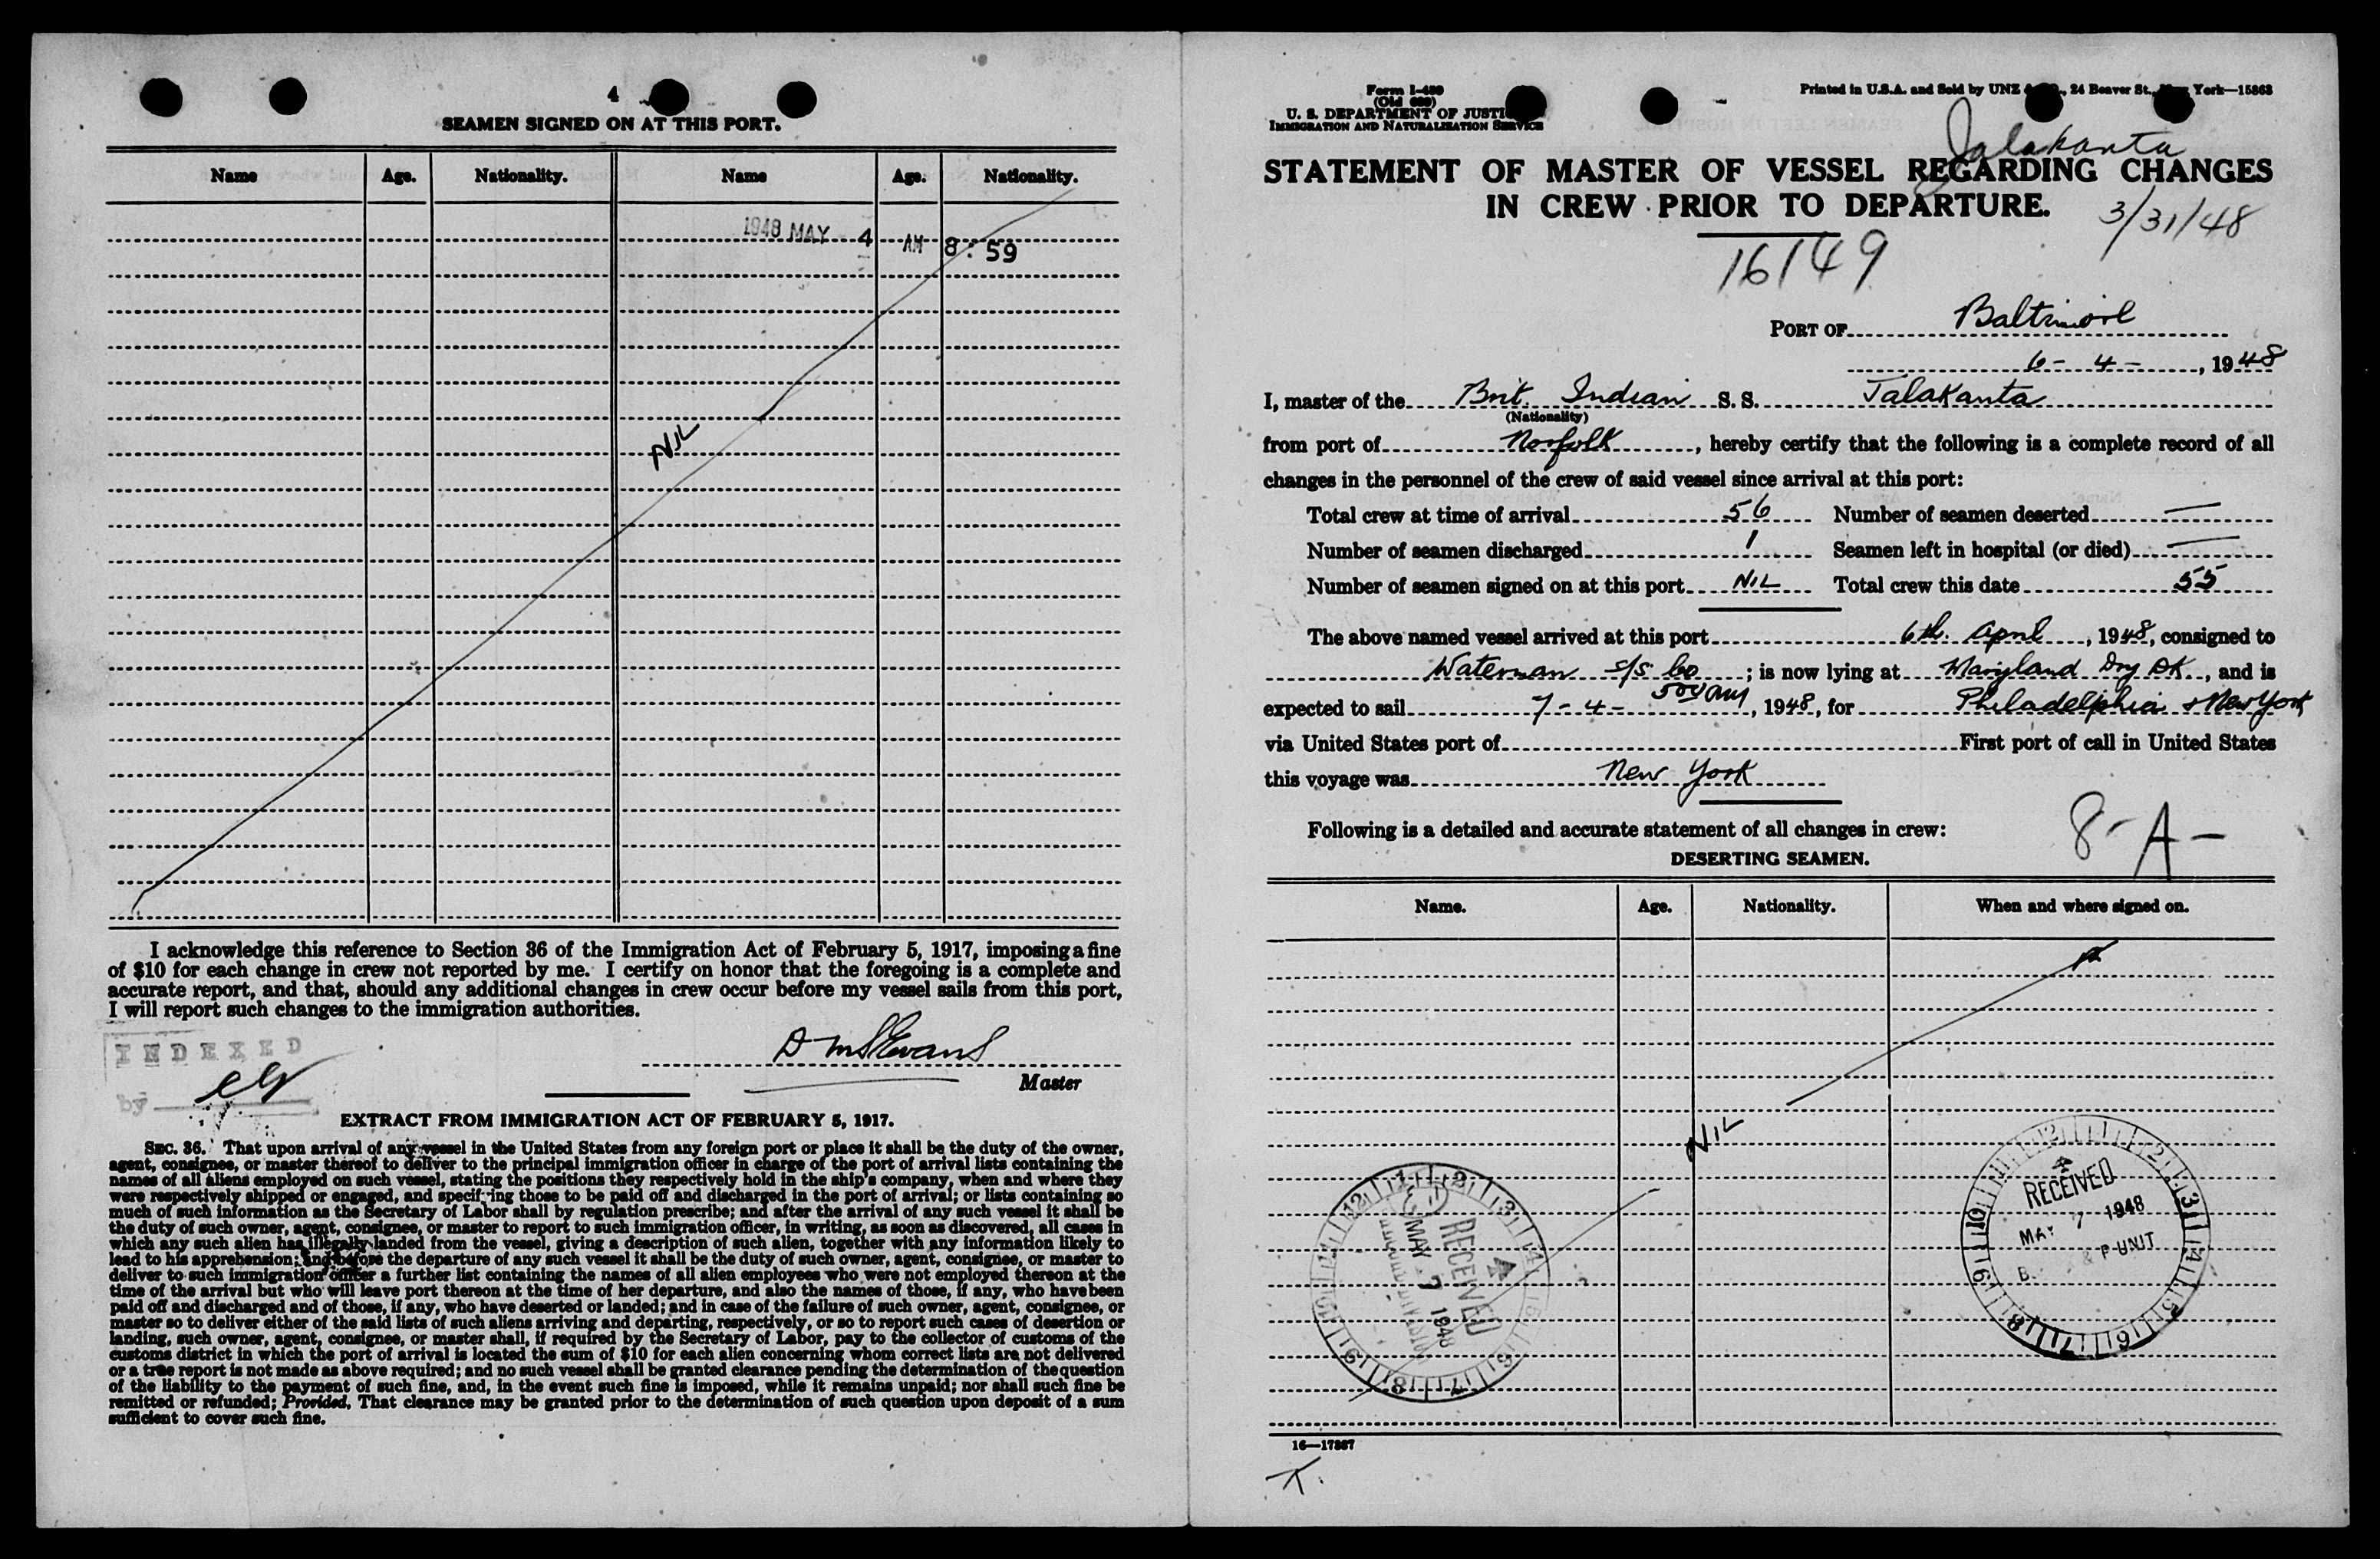 4
SEAMEN SIGNED ON AT THIS PORT.
Name Age. Nationality. Name Age. Nationality.
1948 MAY 4 AM 8:59
NIL
I acknowledge this reference to Section 36 of the Immigration Act of February 5, 1917, imposing a fine
of $10 for each change in crew not reported by me. I certify on honor that the foregoing is a complete and
accurate report, and that, should any additional changes in crew occur before my vessel sails from this port,
I will report such changes to the immigration authorities.
INDEXED
by
Master
EXTRACT FROM IMMIGRATION ACT OF FEBRUARY 5, 1917.
SEC. 36. That upon arrival of any vessel in the United States from any foreign port or place it shall be the duty of the owner,
agent, consignee, or master thereof to deliver to the principal immigration officer in charge of the port of arrival lists containing the
names of all aliens employed on such vessel, stating the positions they respectively hold in the ship's company, when and where they
were respectively shipped or engaged, and specifying those to be paid off and discharged in the port of arrival; or lists containing so
much of such information as the Secretary of Labor shall by regulation prescribe; and after the arrival of any such vessel it shall be
the duty of such owner, agent, consignee, or master to report to such immigration officer, in writing, as soon as discovered, all cases in
which any such alien has illegally landed from the vessel, giving a description of such alien, together with any information likely to
lead to his apprehension; and before the departure of any such vessel it shall be the duty of such owner, agent, consignee, or master to
deliver to such immigration officer a further list containing the names of all alien employees who were not employed thereon at the
time of the arrival but who will leave port thereon at the time of her departure, and also the names of those, if any, who have been
paid off and discharged and of those, if any, who have deserted or landed; and in case of the failure of such owner, agent, consignee, or
master so to deliver either of the said lists of such aliens arriving and departing, respectively, or so to report such cases of desertion or
landing, such owner, agent, consignee, or master shall, if required by the Secretary of Labor, pay to the collector of customs of the
customs district in which the port of arrival is located the sum of $10 for each alien concerning whom correct lists are not delivered
or a true report is not made as above required; and no such vessel shall be granted clearance pending the determination of the question
of the liability to the payment of such fine, and, in the event such fine is imposed, while it remains unpaid; nor shall such fine be
remitted or refunded; Provided, That clearance may be granted prior to the determination of such question upon deposit of a sum
sufficient to cover such fine.
Form I-489
(Old 689)
U. S. DEPARTMENT OF JUSTICE
IMMIGRATION AND NATURALIZATION SERVICE
Printed in U.S.A. and Sold by UNZ & , 24 Beaver St., New York—15863
Jalakanta
STATEMENT OF MASTER OF VESSEL REGARDING CHANGES
IN CREW PRIOR TO DEPARTURE.
3/31/48
16149
PORT OF Baltimore
6 - 4 - , 1948
I, master of the Brit. Indian S. S. Jalakanta
(Nationality)
from port of Norfolk, hereby certify that the following is a complete record of all
changes in the personnel of the crew of said vessel since arrival at this port:
Total crew at time of arrival 56 Number of seamen deserted —
Number of seamen discharged 1 Seamen left in hospital (or died) —
Number of seamen signed on at this port NIL Total crew this date 55
The above named vessel arrived at this port 6th. April, 1948, consigned to
Waterman S/S Co; is now lying at Maryland Dry DK, and is
expected to sail 7 - 4 - , 1948, for Philadelphia & New York
via United States port of First port of call in United States
this voyage was New York
Following is a detailed and accurate statement of all changes in crew:
8 - A -
DESERTING SEAMEN.
Name. Age. Nationality. When and where signed on.
NIL
RECEIVED
MAY 7 1948
RECEIVED
MAY 7 1948
& P-UNIT
16—17887
K.